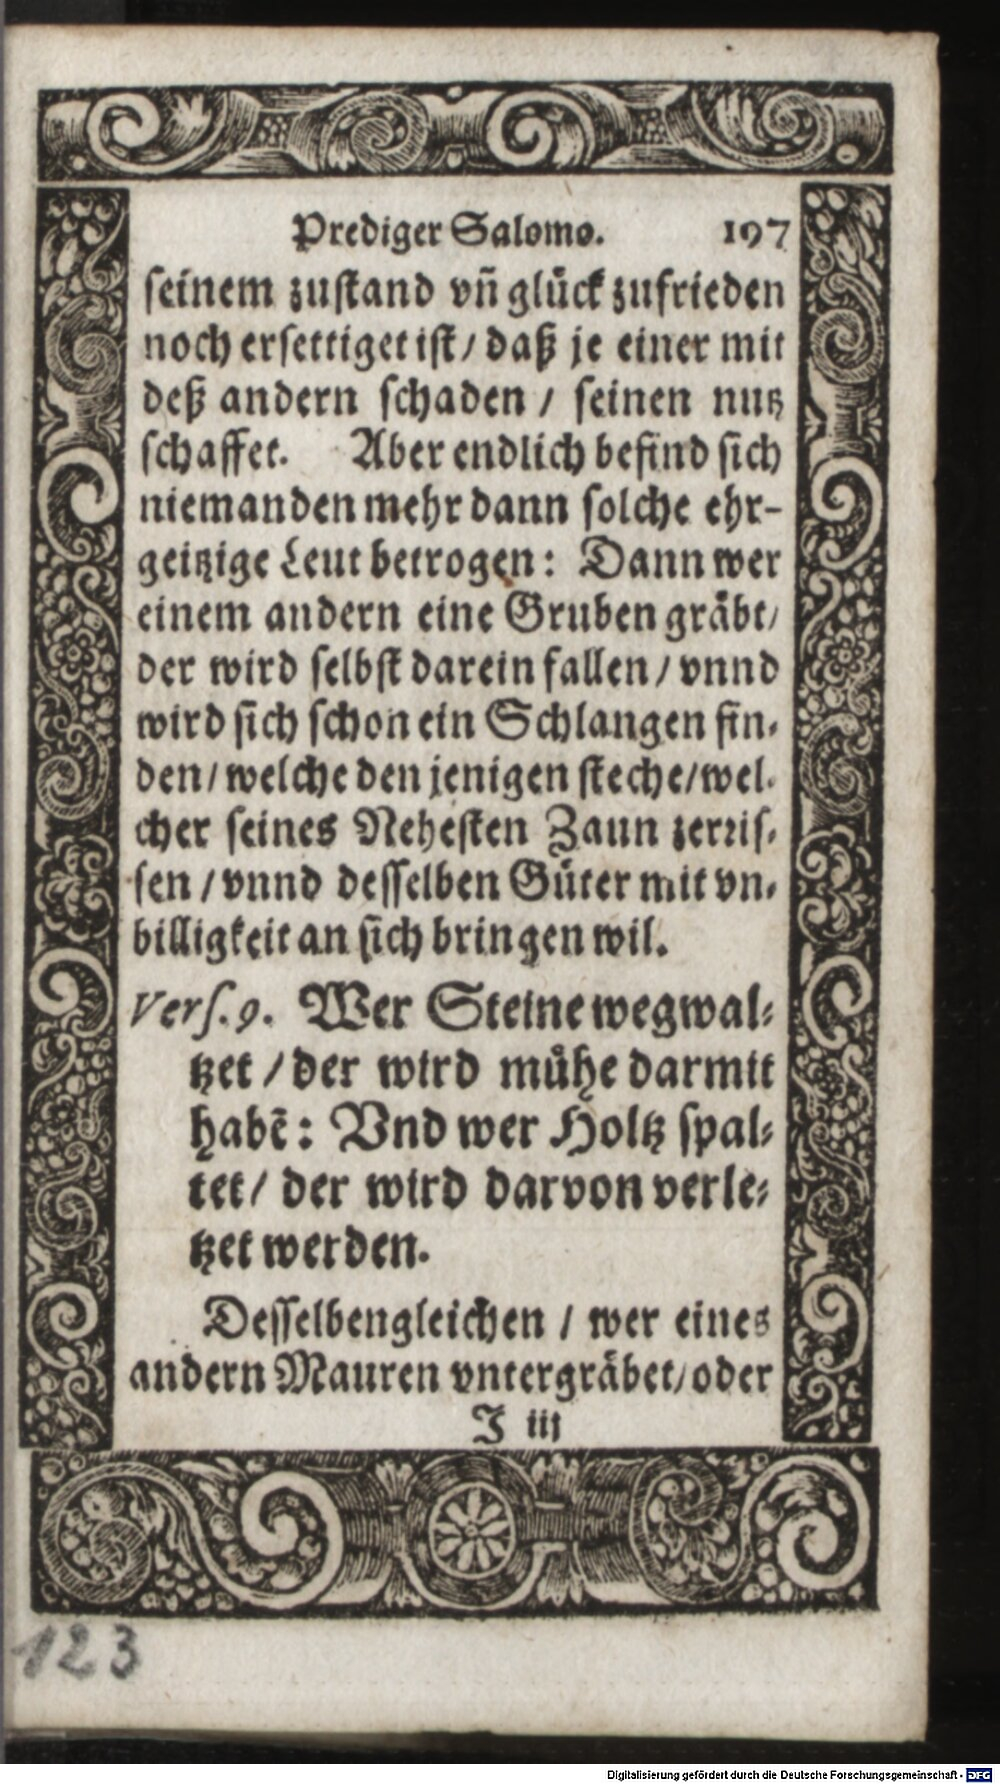 Prediger Salomo. 197
seinem zustand vñ glück zufrieden
noch ersettiget ist / daß je einer mit
deß andern schaden / seinen nutz
schaffet. Aber endlich befind sich
niemanden mehr dann solche ehr-
geitzige Leut betrogen: Dann wer
einem andern eine Gruben gräbt /
der wird selbst darein fallen / vnnd
wird sich schon ein Schlangen fin-
den / welche den jenigen steche / wel-
cher seines Nehesten Zaun zerris-
sen / vnnd desselben Güter mit vn-
billigkeit an sich bringen wil.
Vers. 9. Wer Steine wegwal-
tzet / der wird mühe darmit
habẽ: Vnd wer Holtz spal-
tet / der wird darvon verle-
tzet werden.
Desselbengleichen / wer eines
andern Mauren vntergräbet / oder
J iij
123
Digitalisierung gefördert durch die Deutsche Forschungsgemeinschaft - DFG